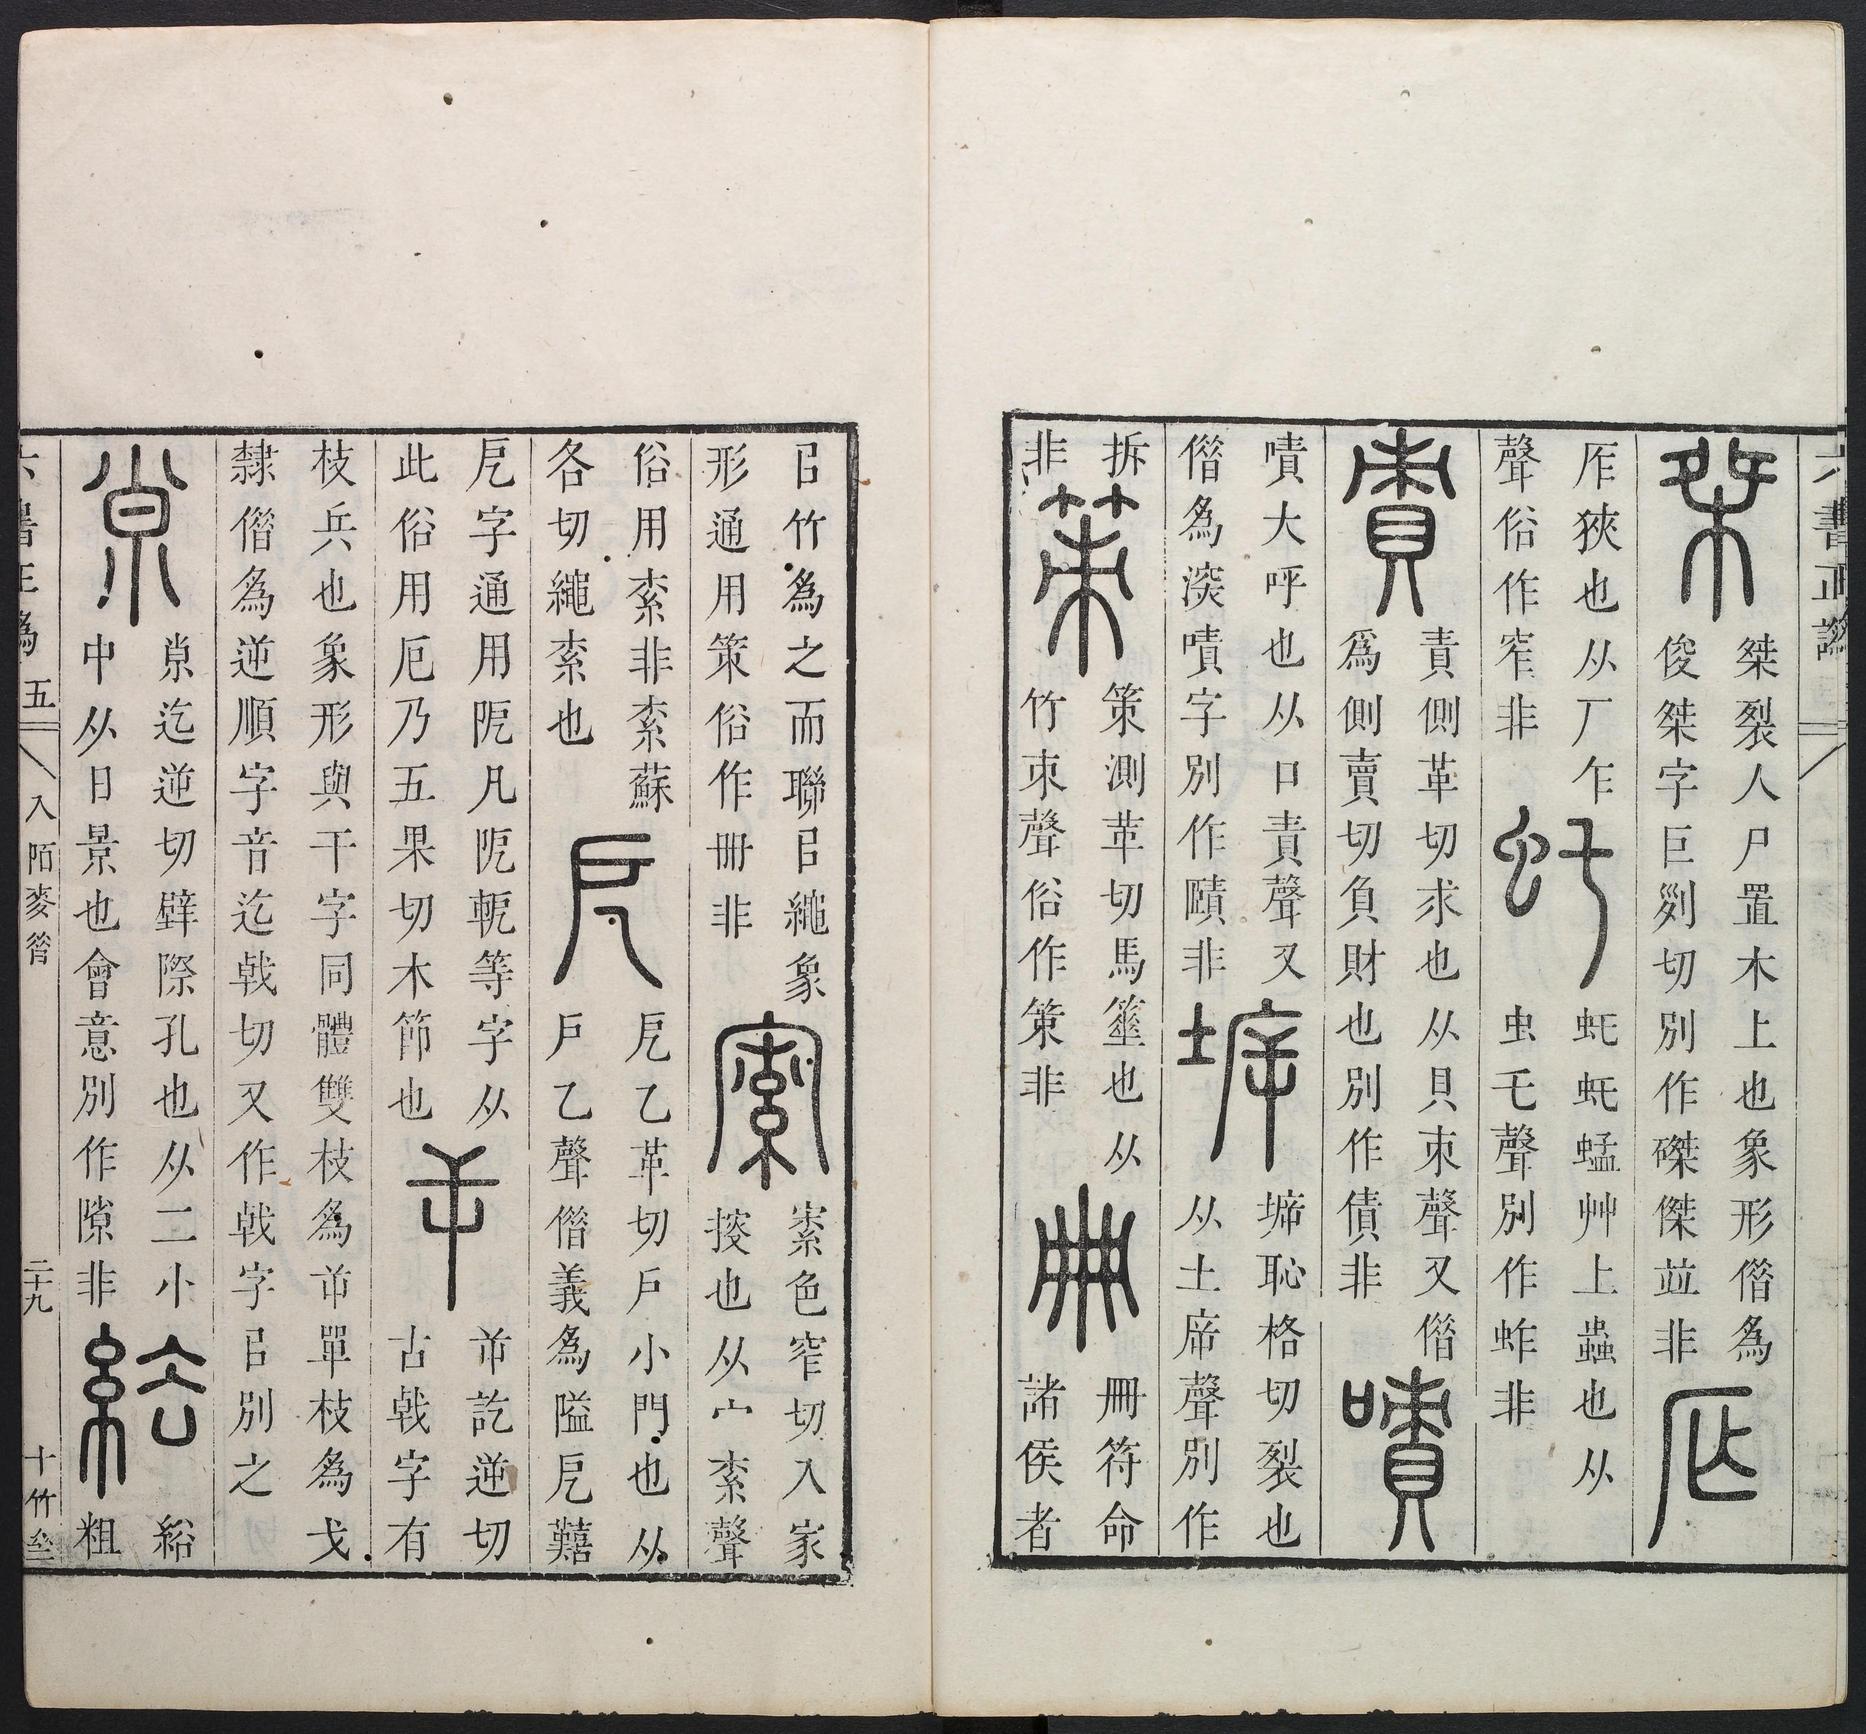 六書正譌
桀
桀裂人尸置木上也象形僭為
俊桀字巨列切別作磔傑並非
厏
厏狹也从厂乍
聲俗作窄非
虴
虴虴蜢艸上蟲也从
虫乇聲別作蚱非
責
責側革切求也从貝朿聲又僭
爲側賣切負財也別作債非
嘖
嘖大呼也从口責聲又
僭爲深嘖字別作賾非
㙤
㙤恥格切裂也
从土㡿聲別作
拆
非
策
策測革切馬箠也从
竹朿聲俗作筞非
冊
冊符命
諸侯者
㠯竹爲之而聯㠯繩象
形通用策俗作冊非
㩹
㩹色窄切入家
搜也从宀索聲
俗用索非索蘇
各切繩索也
戹
戹乙革切戶小門也从
戶乙聲僭義爲隘戹囏
戹字通用阨凡阨軛等字从
此俗用厄乃五果切木節也
屰
屰訖逆切
古戟字有
枝兵也象形與干字同體雙枝爲屰單枝爲戈
隸僭爲逆順字音迄戟切又作戟字㠯別之
𡭴
𡭴迄逆切壁際孔也从二小
中从日景也會意別作隙非
綌
綌
粗
六書正譌 五 入 陌麥昝 二十九 十竹齋